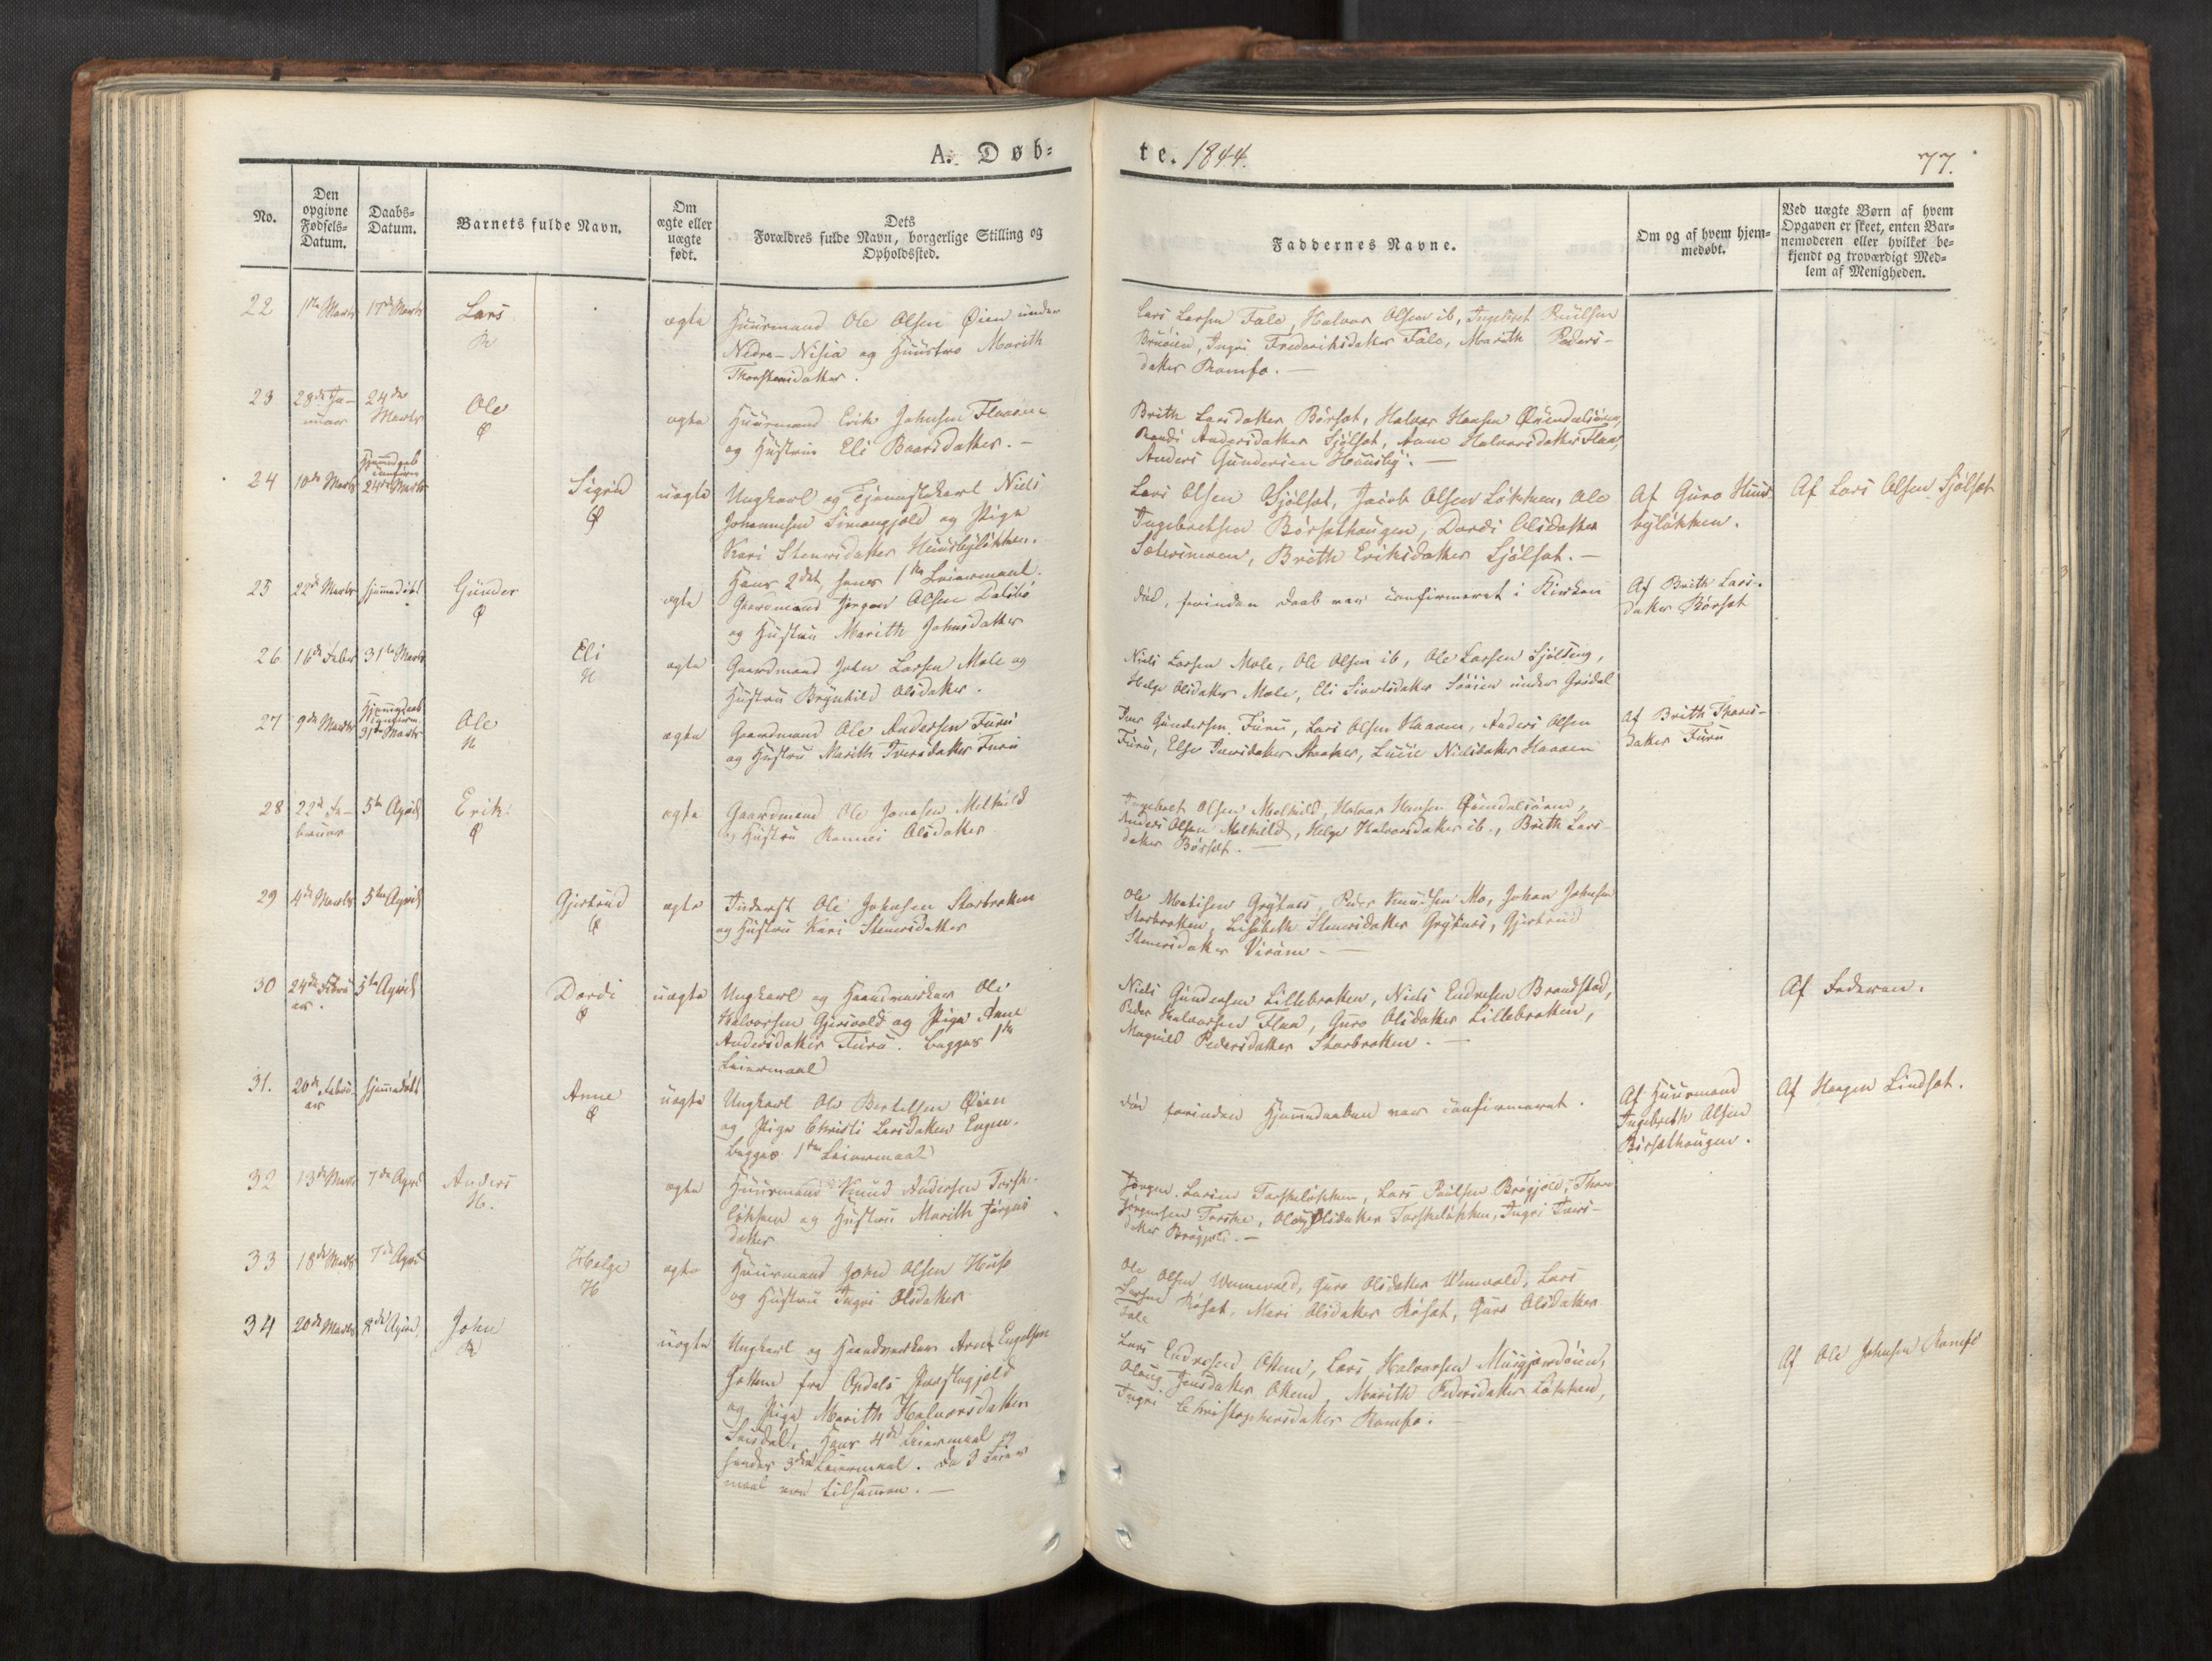 A. Døb=
te. 1844.
77.
No.
Den
opgivne
Fødsels=
Datum.
Daabs=
Datum.
Barnets fulde Navn.
Om
ægte eller
uægte
født.
Dets
Forældres fulde Navn, borgerlige Stilling og
Opholdssted.
Faddernes Navne.
Om og af hvem hjem=
medøbt.
Ved uægte Børn af hvem
Opgaven er skeet, enten Bar=
nemoderen eller hvilket be=
kjendt og troværdigt Med=
lem af Menigheden.
22 1ste Marts 17de Marts Lars ægte
Huusmand Ole Olsen Øien under
Nedre-Nisia og Huustro Marith
Thorstensdatter.
Lars Larsen Fale, Halvor Olsen ib, Ingebret
Bruøien, Ingri Frederiksdatter Fale, Marith Peders-
datter Romfo. —
23 28de Ja- 24de
nuar Marts
Ole
Ø
ægte
Huusmand Erik Johnsen Flaaøien
og Hustrue Eli Baarsdatter. —
Brith Larsdatter Börsæt, Halvor Hansen
Randi Andersdatter Sjölsæt, Anne Halvorsdatter Flaa,
Anders Gundersen Huusby. —
24 10de Marts
Hjemmedaab
confirm
24de Marts
Sigrid
Ø
uægte
Ungkarl og Tjenestekarl Niels
Johannesen Simengjeld og Pige
Kari Stenersdatter Huusbyløkken.
Hans 2det, henes 1ste Leiermaal.
Lars Olsen Sjölsæt, Jacob Olsen Løkken, Ole
Ingebretsen Börsæthaugen, Dordi Olsdatter
Sæterimoen, Brith Eriksdatter Sjölsæt. —
Af Guro Huus-
byløkken.
Af Lars Olsen Sjölsæt
25 22de Marts hjemmedøbt Gunder
Ø
ægte
Gaardmand Jørgen Olsen Dalsbø
og Hustru Marith Johnsdatter
død, forinden Daab var confirmeret i Kirken
Af Brith Lars-
datter Börsæt
26 16de Febr 31te Marts Eli
H
ægte
Gaardmand John Larsen Mæle og
Hustru Brynhild Olsdatter.
Niels Larsen Mæle, Ole Olsen ib, Ole Larsen Sjölseng,
Helge Olsdatter Mæle, Eli Sivertsdatter under Grødal
27 9de Marts
Hjemmedaab
confirm.
31te Marts
Ole
H
ægte
Gaardmand Ole Andersen Furu
og Hustru Marith Iversdatter Furu
Iver Gundersen Furu, Lars Olsen Haaven, Anders Olsen
Furu, Else Iversdatter, Nielsdatter Haaven
Af Brith Thores-
datter Furu
28 22de Fe- 5te April Erik
bruar
Ø
ægte
Gaardmand Ole Jonsen Melkild
og Hustru Rannei Olsdatter
Ingebret Olsen Melkild, Halvor Hansen
Anders Olsen Melkild, Helge Halvorsdatter ib., Brith Lars-
datter Börsæt. —
29 4de Marts 5te April Gjertrud
Ø
ægte
Inderst Ole Johnsen Storbrøtten
og Hustru Kari Stenersdatter
Ole Matisen Grytnes, Peder Knudsen Mo, Johan Johnsen
Storbrøtten, Lisabeth Stenersdatter Grytnes, Gjertrud
Stenersdatter
30 24de Febru- 5te April Dordi
ar.
Ø
uægte
Ungkarl og Haandværker Ole
Halvorsen Gjersvold og Pige Anne
Andersdatter Furu. begges 1ste
Leiermaal
Niels Gundersen Lillebrøtten, Niels Endresen Brandstad,
Peder Halvorsen Flaa, Guro Olsdatter Lillebrøtten,
Magnild Pedersdatter Storbrøtten. —
Af Faderen.
31. 26de Febru- hjemmedøbt Anne
ar
Ø
uægte
Ungkarl Ole Bertelsen Øien
og Pige Christi Larsdatter Engen.
begges 1ste Leiermaal
død forinden Hjemmedaaben var confirmeret.
Af Huusmand
Ingebreth Olsen
Börsæthaugen.
Af Haagen Lindset.
32 13de Marts 7de April Anders
H.
ægte
Huusmand Knud Andersen Torske-
løkken og Hustru Marith Jørgens-
datter
Jørgen Larsen Torskeløkken, Lars Poulsen, Thore
Jørgensen Torske, Olsdatter Torskeløkken, Ingri Ivers-
datter
33 18de Marts 7de April Helge
H
ægte
Huusmand John Olsen
og Hustru Ingri Olsdatter
Ole Olsen Wennevold, Guro Olsdatter Wenevold, Lars
Larsen Röset, Mari Olsdatter Röset, Guro Olsdatter
Fale
34 20de Marts 8de April John
uægte
Ungkarl og Haandværker Arnt Engelsen
fra Opdals Præstegjeld
og Pige Marith Halvorsdatter
Hans 4de Leiermaal og
hendes 3die Leiermaal. De 3 Leier-
maal ere tilsammen. —
Lars Endresen Ottem, Lars Halvorsen Musgjerdøien,
Olaug Jensdatter Ottem, Marith Pedersdatter Løkken,
Ingri Christophersdatter Romfo.
Af Ole Johnsen Romfo